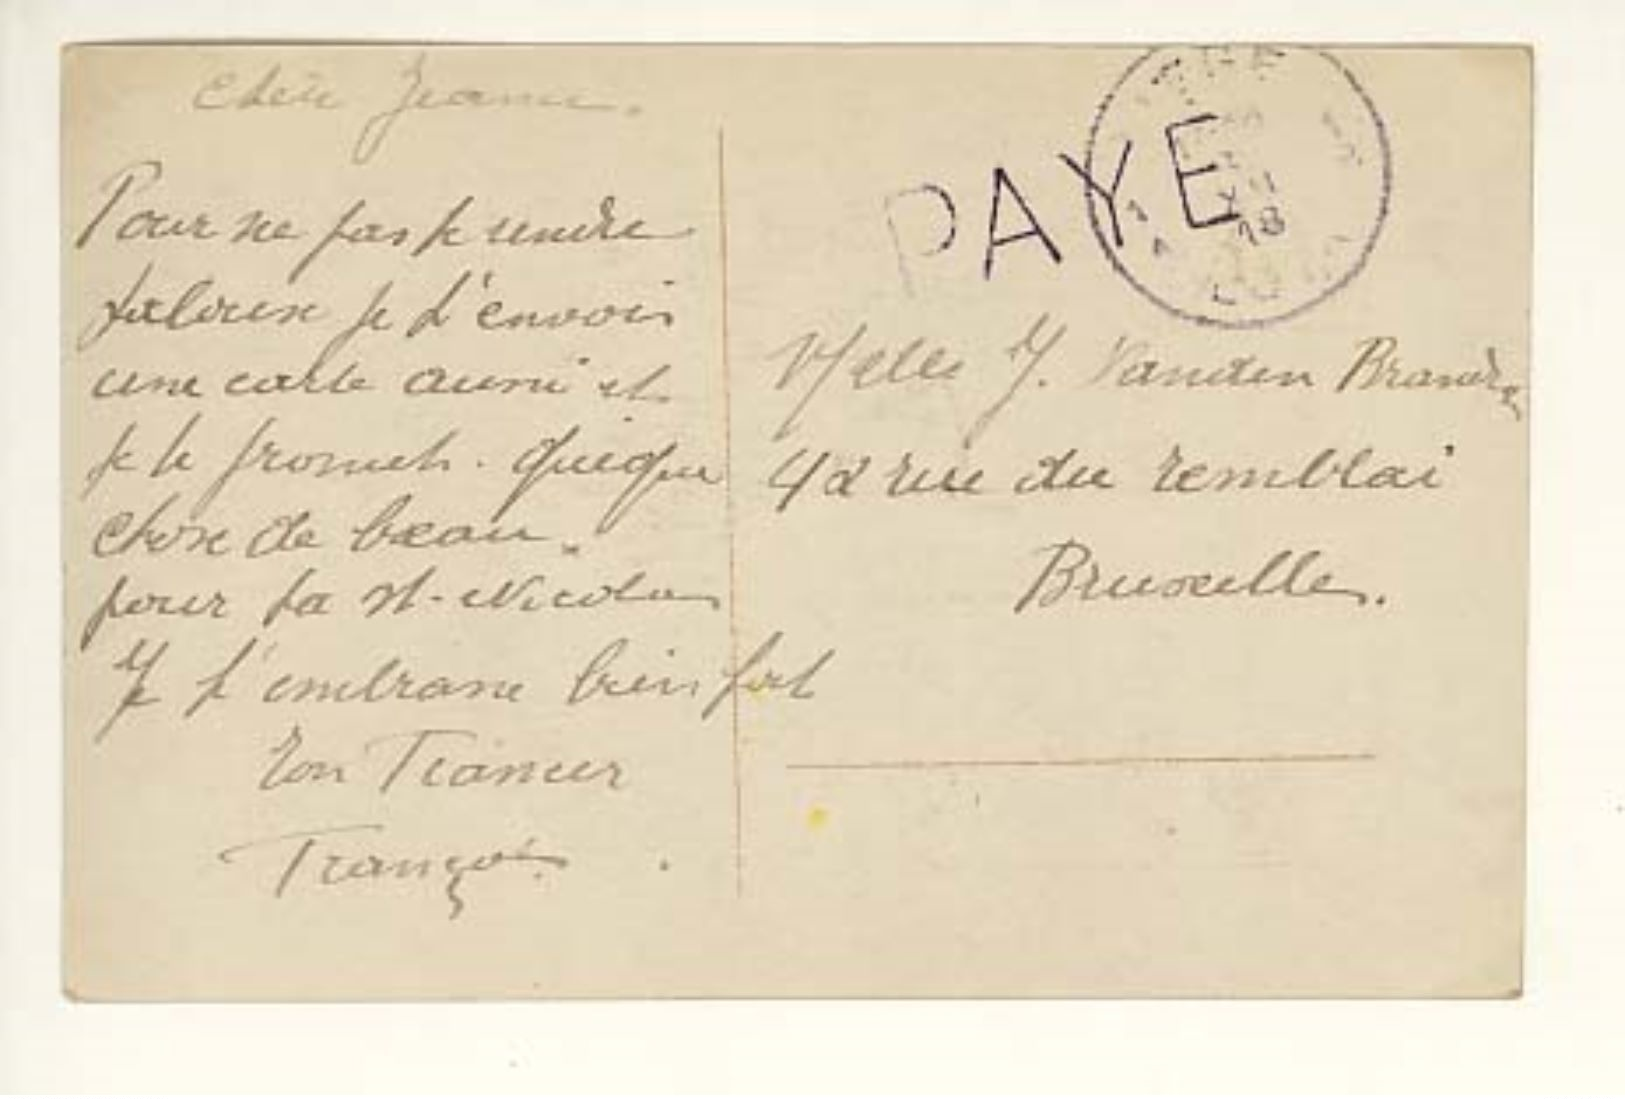 Chère Jeanne.
Pour ne pas te rendre
jalouse je t'envois
une carte aussi et
je te promets. quelque
chose de beau.
pour ta St-Nicolas
Je t'embrasse bien fort
Ton
François.
PAYE
XII
18
Melle J. Vanden
42 rue du remblai
Bruxelles.